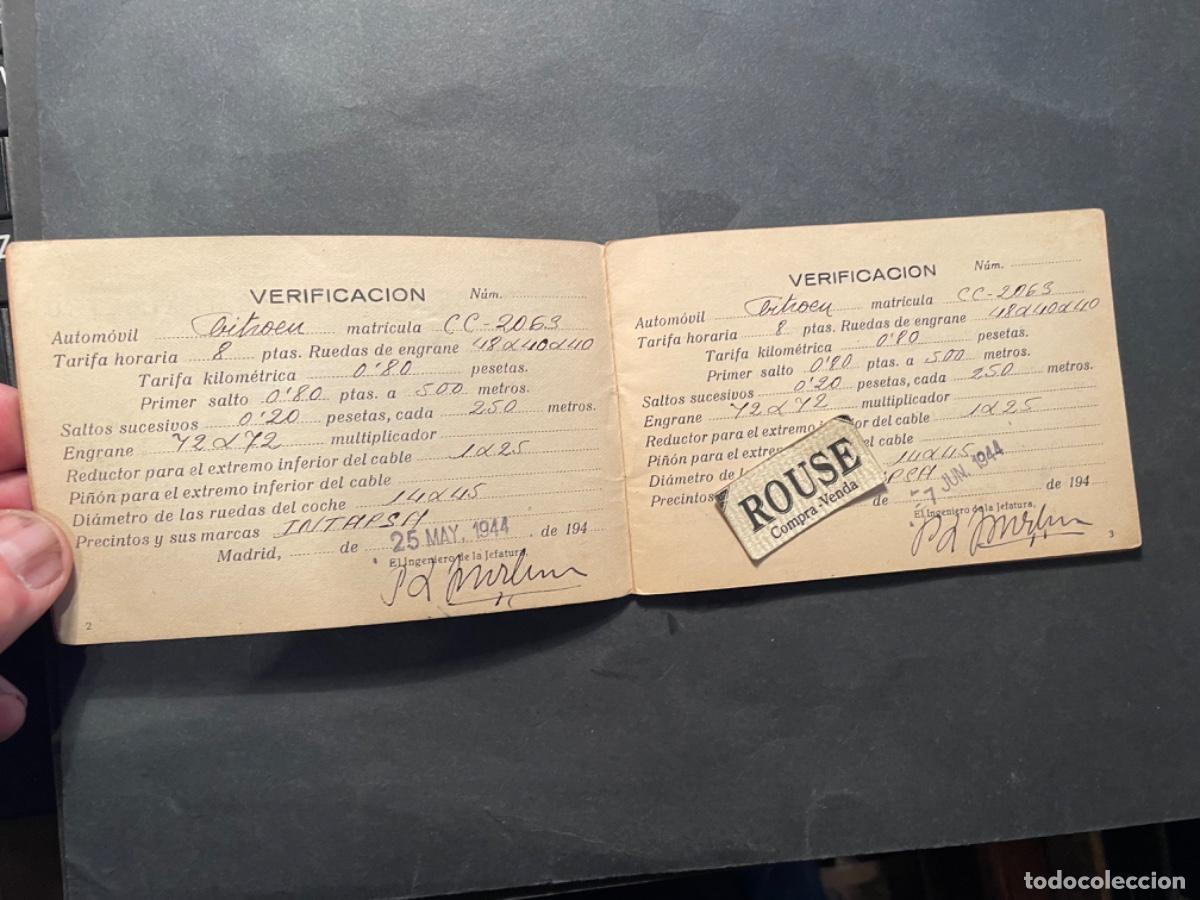 VERIFICACION Núm.
Automóvil Citroen matrícula CC-2063
Tarifa horaria 8 ptas. Ruedas de engrane 48x40x40
Tarifa kilométrica 0'80 pesetas.
Primer salto 0'80 ptas. a 500 metros.
Saltos sucesivos 0'20 pesetas, cada 250 metros.
Engrane 72x72 multiplicador
Reductor para el extremo inferior del cable 1x25
Piñón para el extremo inferior del cable
Diámetro de las ruedas del coche 14x45
Precintos y sus marcas INTAPSA
Madrid, de 25 MAY. 1944 de 194
El Ingeniero de la Jefatura,
2
VERIFICACION Núm.
Automóvil Citroen matrícula CC-2063
Tarifa horaria 8 ptas. Ruedas de engrane 48x40x40
Tarifa kilométrica 0'80 pesetas.
Primer salto 0'80 ptas. a 500 metros.
Saltos sucesivos 0'20 pesetas, cada 250 metros.
Engrane 72x72 multiplicador
Reductor para el extremo in el cable 1x25
Piñón para el extre el cable
Diámetro de l 14x45
Precintos PSA
-7 JUN. 1944 de 194
El Ingeniero de la Jefatura,
3
ROUSE
Compra-Venda
Z
todocoleccion